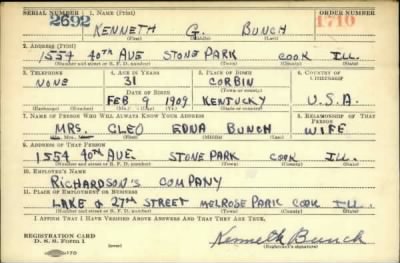 SERIAL NUMBER 1. NAME (Print) ORDER NUMBER
2692 KENNETH G. BUNCH 1710
(First) (Middle) (Last)
2. ADDRESS (Print)
1554 40TH AVE STONE PARK COOK ILL.
(Number and street or R. F. D. number) (Town) (County) (State)
3. TELEPHONE 4. AGE IN YEARS 5. PLACE OF BIRTH 6. COUNTRY OF CITIZENSHIP
NONE 31 CORBIN
DATE OF BIRTH (Town or county)
FEB 9 1909 KENTUCKY U.S.A.
(Exchange) (Number) (Mo.) (Day) (Yr.) (State or country)
7. NAME OF PERSON WHO WILL ALWAYS KNOW YOUR ADDRESS 8. RELATIONSHIP OF THAT PERSON
MRS. CLEO EDNA BUNCH WIFE
(Mr., Mrs., Miss) (First) (Middle) (Last)
9. ADDRESS OF THAT PERSON
1554 40TH AVE. STONE PARK COOK ILL.
(Number and street or R. F. D. number) (Town) (County) (State)
10. EMPLOYER'S NAME
RICHARDSON'S COMPANY
11. PLACE OF EMPLOYMENT OR BUSINESS
LAKE & 27TH STREET MELROSE PARK COOK ILL.
(Number and street or R. F. D. number) (Town) (County) (State)
I AFFIRM THAT I HAVE VERIFIED ABOVE ANSWERS AND THAT THEY ARE TRUE.
REGISTRATION CARD
D. S. S. Form 1 Kenneth Bunch
(Registrant's signature)